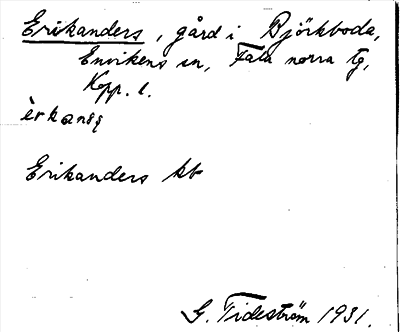 Erikanders, gård i Björkboda,
Envikens sn, Fala norra tg,
Kopp. l.
Erikanders kb
G. Tideström 1931.